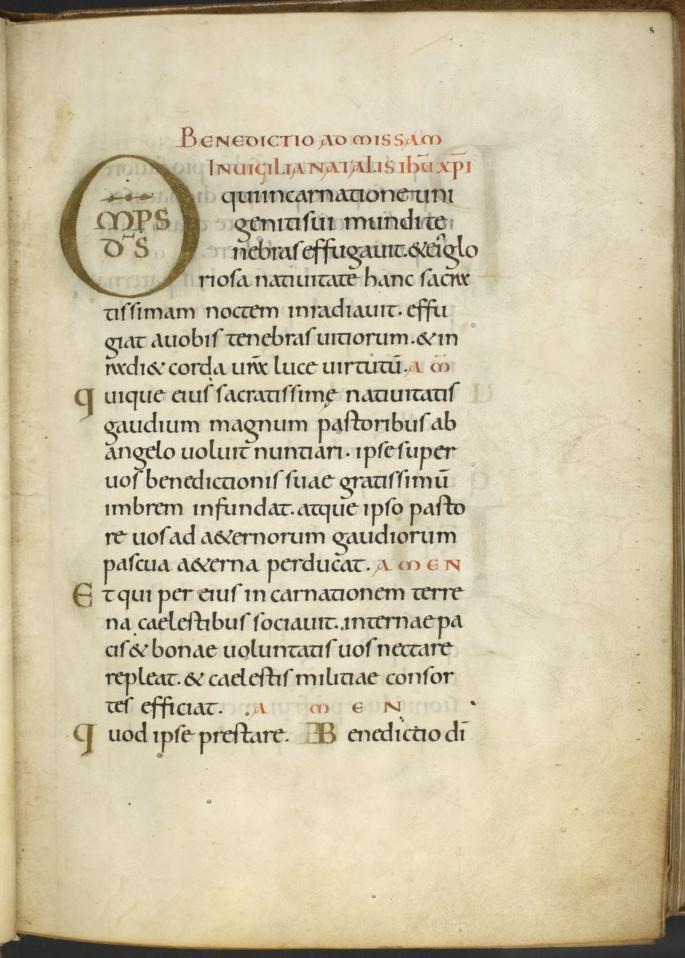 8
BENEDICTIO AD MISSAM
IN UIGILIA NATALIS ihū xp̄i
OMPS quiincarnatione uni
D̄S genitisui mundi te
nebras effugauit. & eiꝰ glo
riosa natiuitate hanc sacra
tissimam noctem inradiauit. effu
giat auobis tenebras uitiorum. & in
radi& corda urā luce uirtutū. A M̄
quique eius sacratissimę natiuitatis
gaudium magnum pastoribus ab
angelo uoluit nuntiari. ipse super
uos benedictionis suae gratissimū
imbrem infundat. atque ipso pasto
re uos ad a&ernorum gaudiorum
pascua a&erna perducat. AMEN
Et qui per eius in carnationem terre
na caelestibus sociauit. internae pa
cis & bonae uoluntatis uos nectare
repleat. & caelestis militiae consor
tes efficiat. A M E N
quod ipse prestare. B enedictio dī